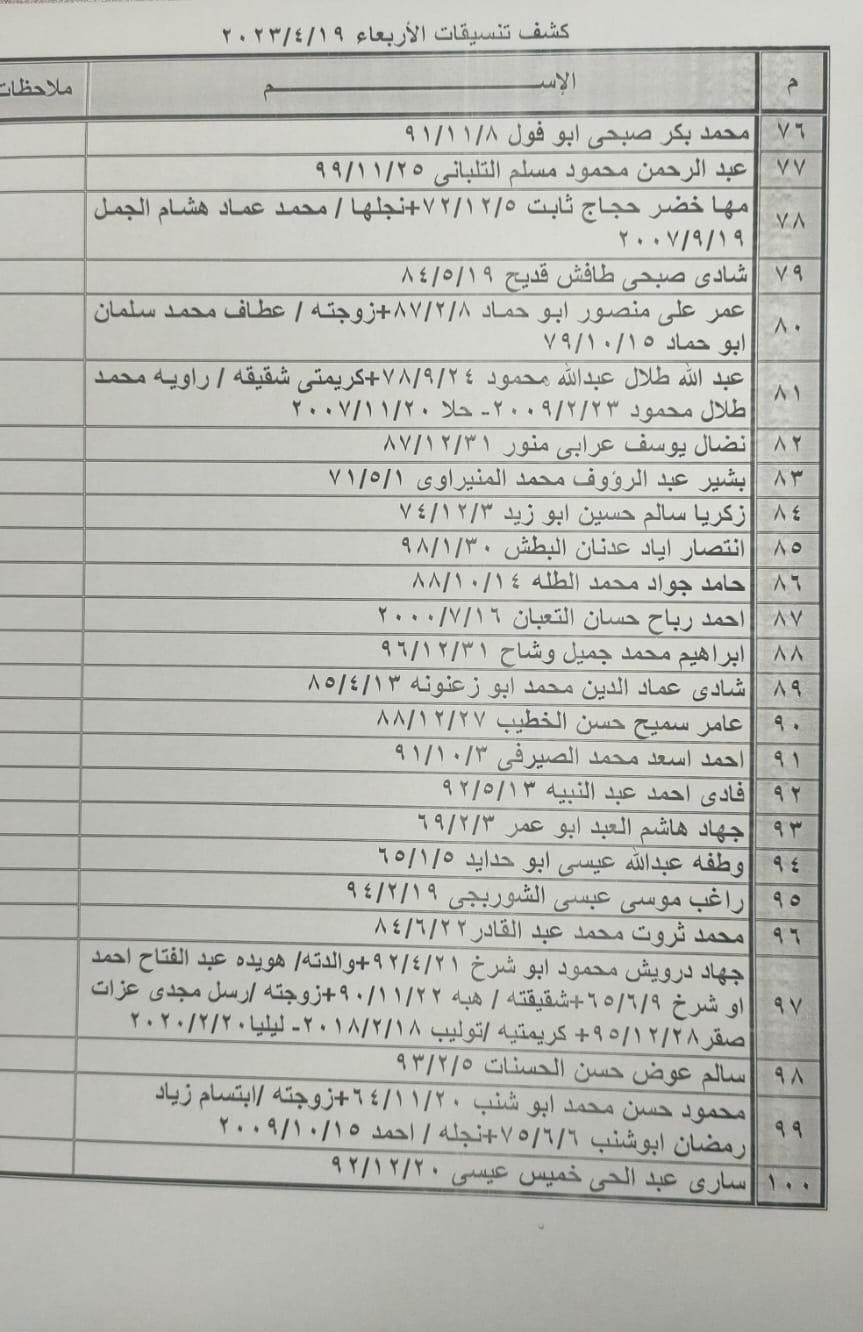 كشف تنسيقات الأربعاء ٢٠٢٣/٤/١٩
م الإســـــــــم ملاحظات
٧٦ محمد بكر صبحى ابو فول ٩١/١١/٨
٧٧ عبد الرحمن محمود مسلم التلبانى ٩٩/١١/٢٥
٧٨ مها خضر حجاج ثابت ٧٢/١٢/٥+نجلها / محمد عماد هشام الجمل
٢٠٠٧/٩/١٩
٧٩ شادى صبحى طافش قديح ٨٤/٥/١٩
٨٠ عمر على منصور ابو حماد ٨٧/٢/٨+زوجته / عطاف محمد سلمان
ابو حماد ٧٩/١٠/١٥
٨١ عبد الله طلال عبدالله محمود ٧٨/٩/٢٤+كريمتى شقيقه / راويه محمد
طلال محمود ٢٠٠٩/٢/٢٣- حلا ٢٠٠٧/١١/٢٠
٨٢ نضال يوسف عرابى منور ٨٧/١٢/٣١
٨٣ بشير عبد الرؤوف محمد المنيراوى ٧١/٥/١
٨٤ زكريا سالم حسين ابو زيد ٧٤/١٢/٣
٨٥ انتصار اياد عدنان البطش ٩٨/١/٣٠
٨٦ حامد جواد محمد الطله ٨٨/١٠/١٤
٨٧ احمد رباح حسان التعبان ٢٠٠٠/٧/١٦
٨٨ ابراهيم محمد جميل وشاح ٩٦/١٢/٣١
٨٩ شادى عماد الدين محمد ابو زعنونه ٨٥/٤/١٣
٩٠ عامر سميح حسن الخطيب ٨٨/١٢/٢٧
٩١ احمد اسعد محمد الصيرفى ٩١/١٠/٣
٩٢ فادى احمد عبد النبيه ٩٢/٥/١٣
٩٣ جهاد هاشم العبد ابو عمر ٦٩/٢/٣
٩٤ وطفه عبدالله عيسى ابو حدايد ٦٥/١/٥
٩٥ راغب موسى عبسى الشوربجى ٩٤/٢/١٩
٩٦ محمد ثروت محمد عبد القادر ٨٤/٦/٢٢
٩٧ جهاد درويش محمود ابو شرخ ٩٢/٤/٢١+والدته/ هويده عبد الفتاح احمد
او شرخ ٦٥/٦/٩+شقيقته / هبه ٩٠/١١/٢٢+زوجته /رسل مجدى عزات
صقر ٩٥/١٢/٢٨+ كريمتيه /توليب ٢٠١٨/٢/١٨- ليليا ٢٠٢٠/٢/٢٠
٩٨ سالم عوض حسن الحسنات ٩٣/٢/٥
٩٩ محمود حسن محمد ابو شنب ٦٤/١١/٢٠+زوجته /ابتسام زياد
رمضان ابوشنب ٧٥/٦/٦+نجله / احمد ٢٠٠٩/١٠/١٥
١٠٠ سارى عبد الحى خميس عيسى ٩٢/١٢/٢٠